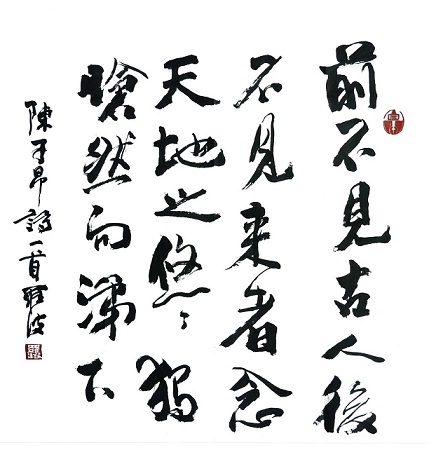 前不見古人後
不見来者念
天地之悠々獨
愴然而涕下
陳子昂詩一首